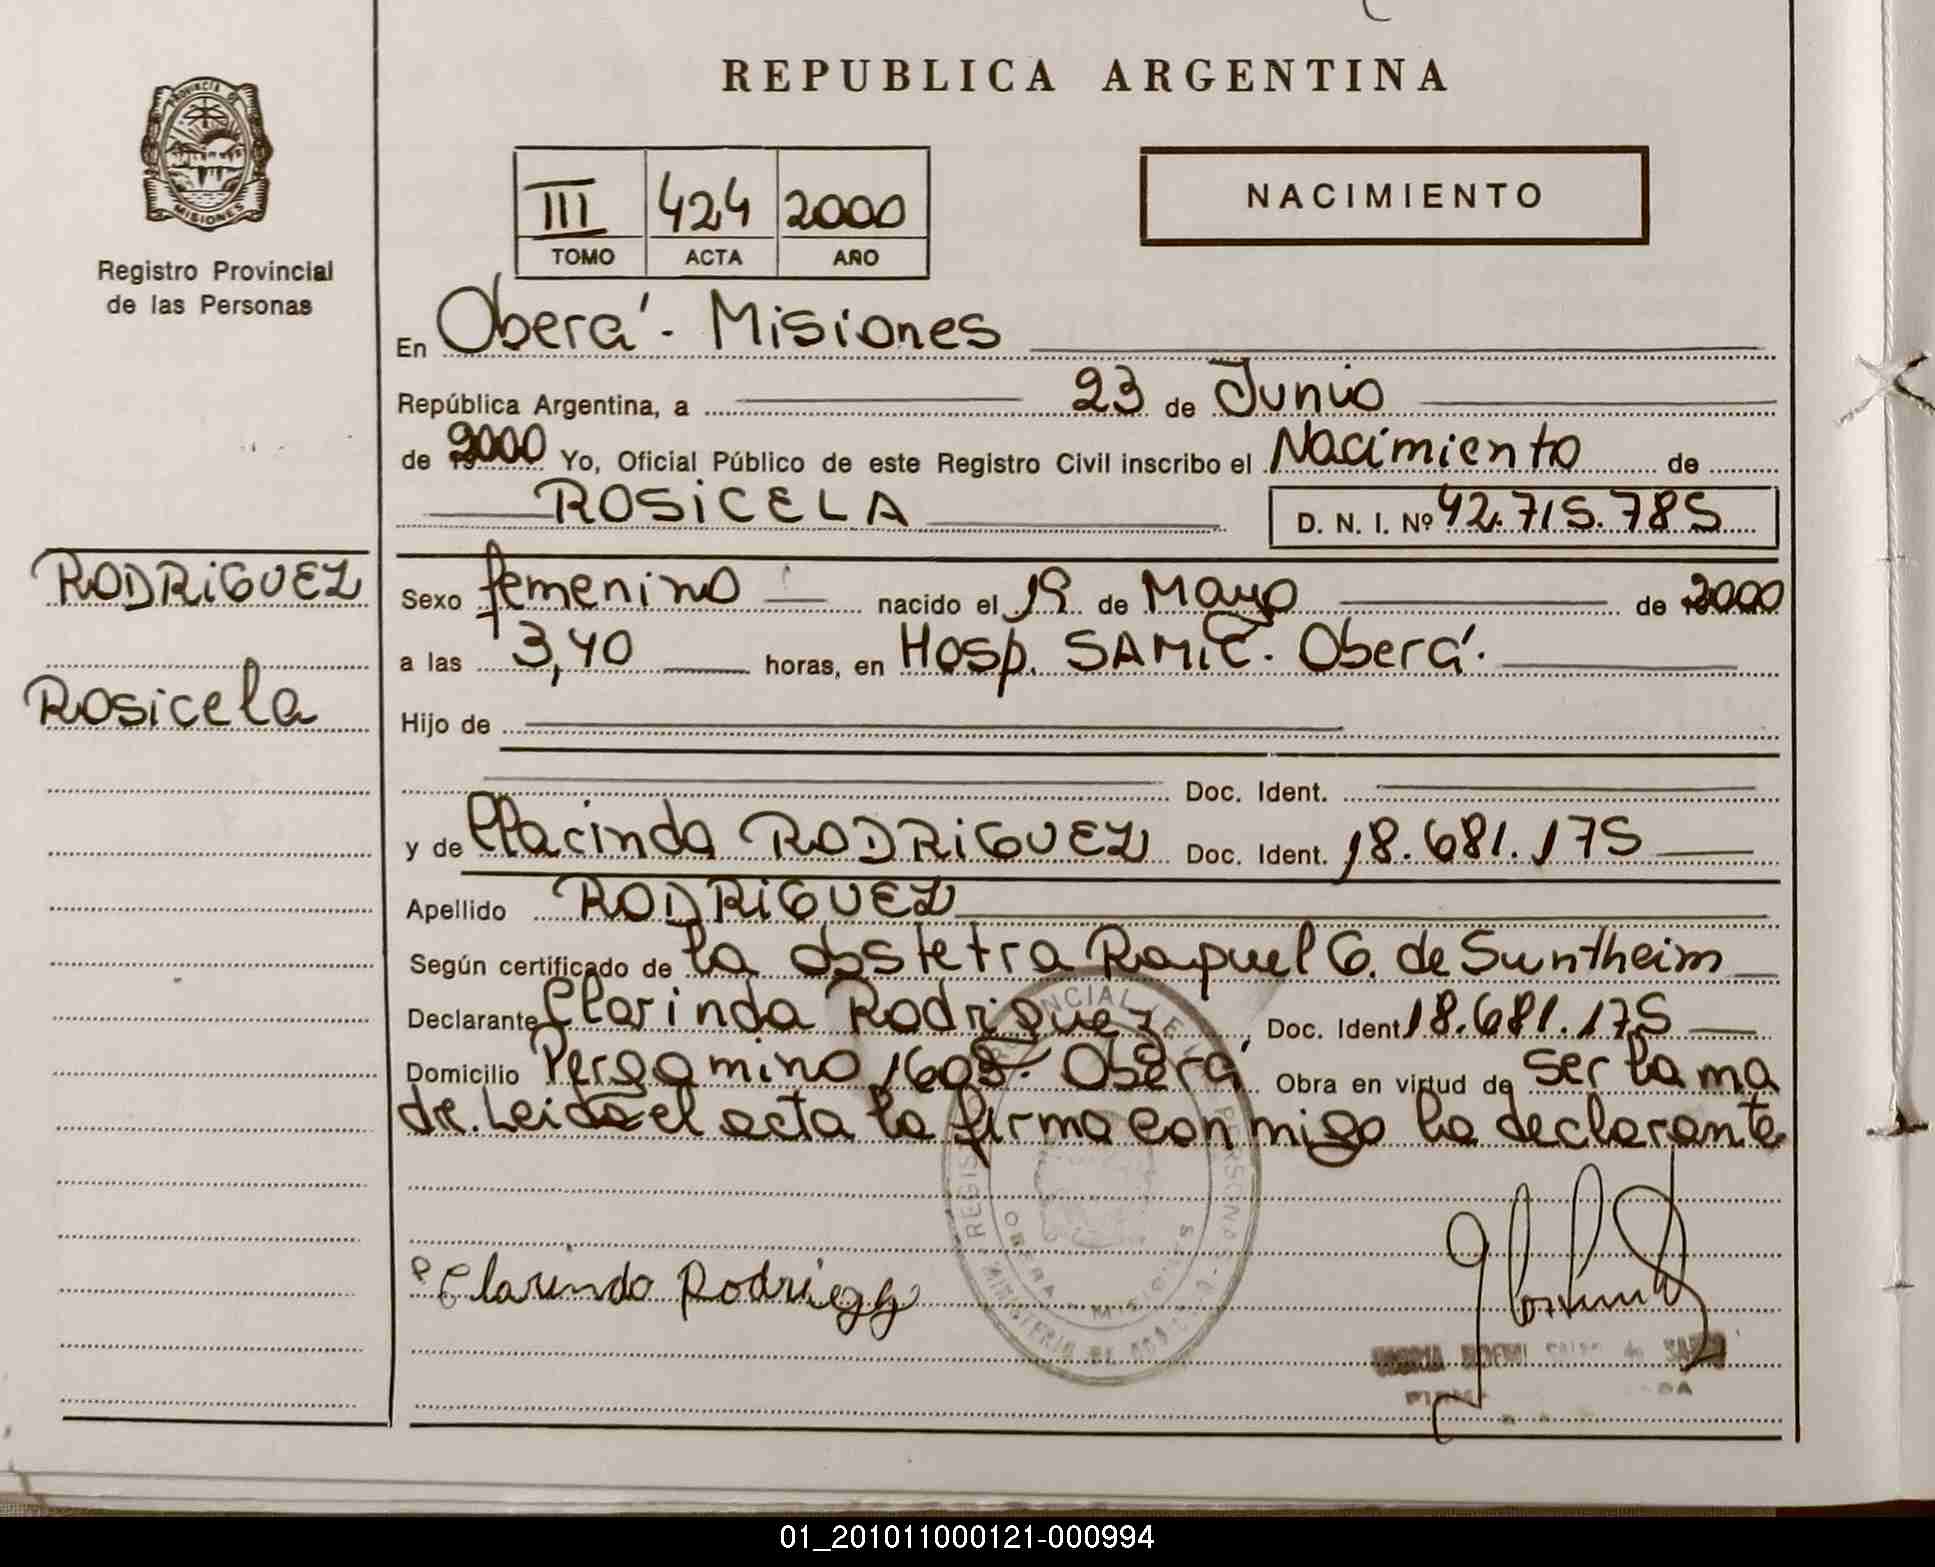 REPUBLICA ARGENTINA
PROVINCIA DE
MISIONES
Registro Provincial
de las Personas
III 424 2000
TOMO ACTA AÑO
NACIMIENTO
En Oberá - Misiones
República Argentina, a 23 de Junio
de 2000 Yo, Oficial Público de este Registro Civil inscribo el Nacimiento de
ROSICELA D. N. I. Nº 42.715.785
RODRIGUEZ
Rosicela
Sexo femenino nacido el 19 de Mayo de 2000
a las 3,40 horas, en Hosp. SAMIC. Oberá.
Hijo de
Doc. Ident.
y de RODRIGUEZ Doc. Ident. 18.681.175
Apellido RODRIGUEZ
Según certificado de la obstetra Raquel G. de Suntheim
Declarante Clarinda Rodriguez, Doc. Ident 18.681.175
Domicilio Pergamino 1608- Oberá Obra en virtud de ser la ma
dre. Leida el acta la firma conmigo la declarante
OBERA MISIONES
Clarindo
01_201011000121-000994